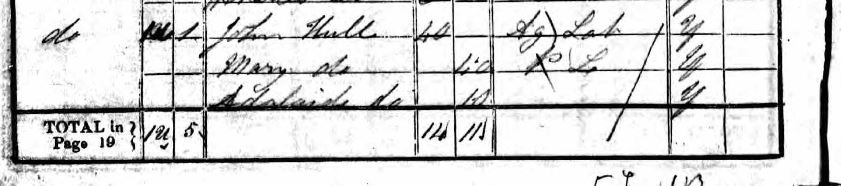 do 1 John Hull 40 Ag Lab Y
Mary do 40 Y
Adelaide do 10 Y
TOTAL in Page 19 5 14 11